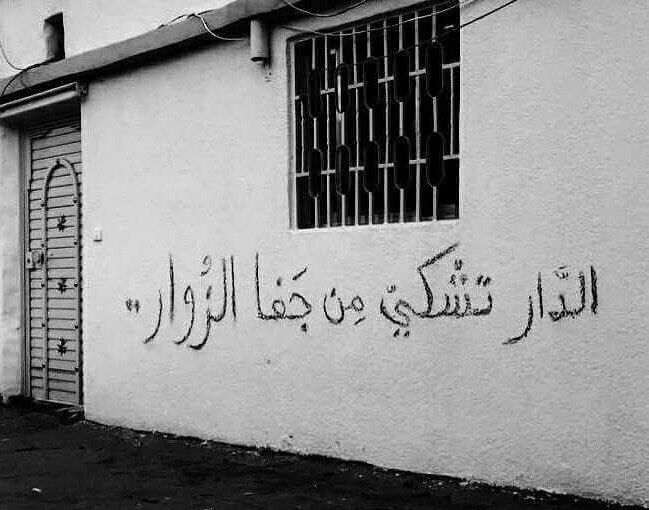 الدَّار تشْكيْ مِن جَفا الزُوار..